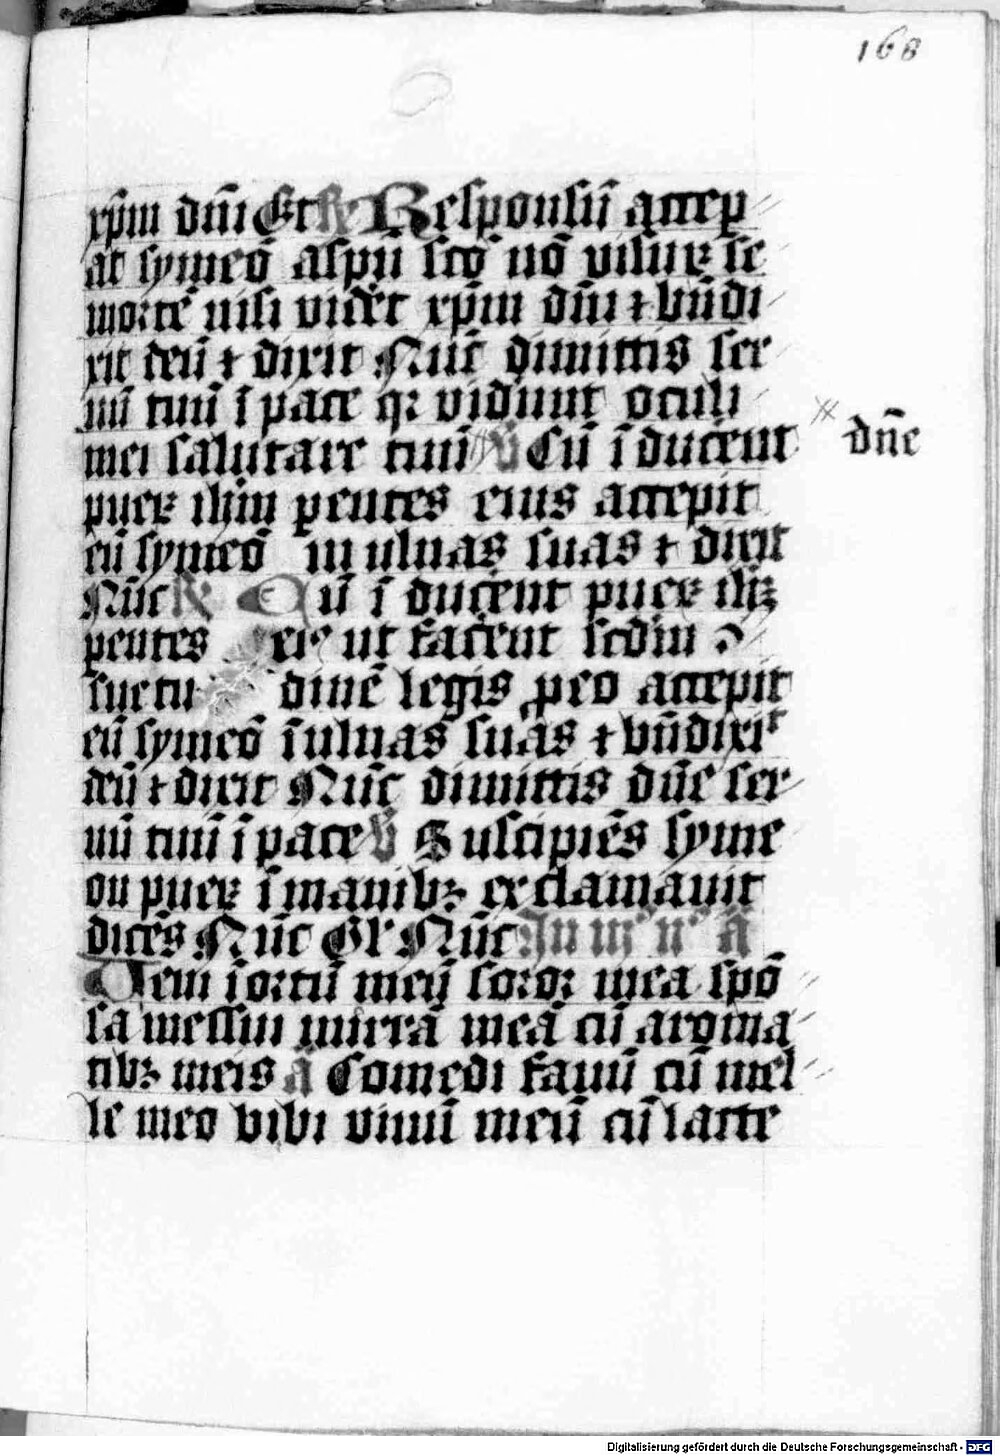 168
xp̄m dn̄i Et ℟ Responsū accep
at symeō a spū sco nō visuꝝ se
morte nisi videt xp̄m dn̄i ⁊ bn̄di
xit deū ⁊ dixit Nūc dimittis ser
uū tuū ī pace qꝛ vidūnt oculi
mei salutare tuū ℣ Cū īducent dn̄e
pueꝝ ihm pentes eius accepit
eū symeō in ulnas suas ⁊ dixit
Nūc ℟ Cū ī ducent pueꝝ ihꝫ
pentes eiꝰ ut facent scdm ↄ
suetu dinē legis ꝓ eo accepit
eū symeō ī ulnas suas ⁊ bn̄dixit
deū ⁊ dixit Nūc dimittis dn̄e ser
uū tuū ī pace ℣ Suscipiēs syme
on pueꝝ ī manibꝫ exclamauit
dicēs Nūc Gl' Nūc In iijº nº ā
Veni ī ortū meū soror mea spō
sa messui mirrā meā cū aroma
tibꝫ meis ā Comedi fauū cū mel
le meo bibi vinū meū cū lacte
Digitalisierung gefördert durch die Deutsche Forschungsgemeinschaft - DFG